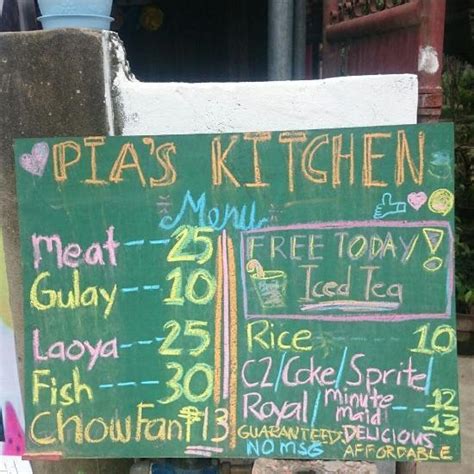 PIA'S KITCHEN
Menu
Meat -- 25
Gulay -- 10
Laoya -- 25
Fish -- 30
ChowFan ₱13
FREE TODAY!
Iced Tea
Rice 10
C2/Coke/Sprite/
Royal/minute maid -- 12
13
GUARANTEED: DELICIOUS
NO MSG AFFORDABLE